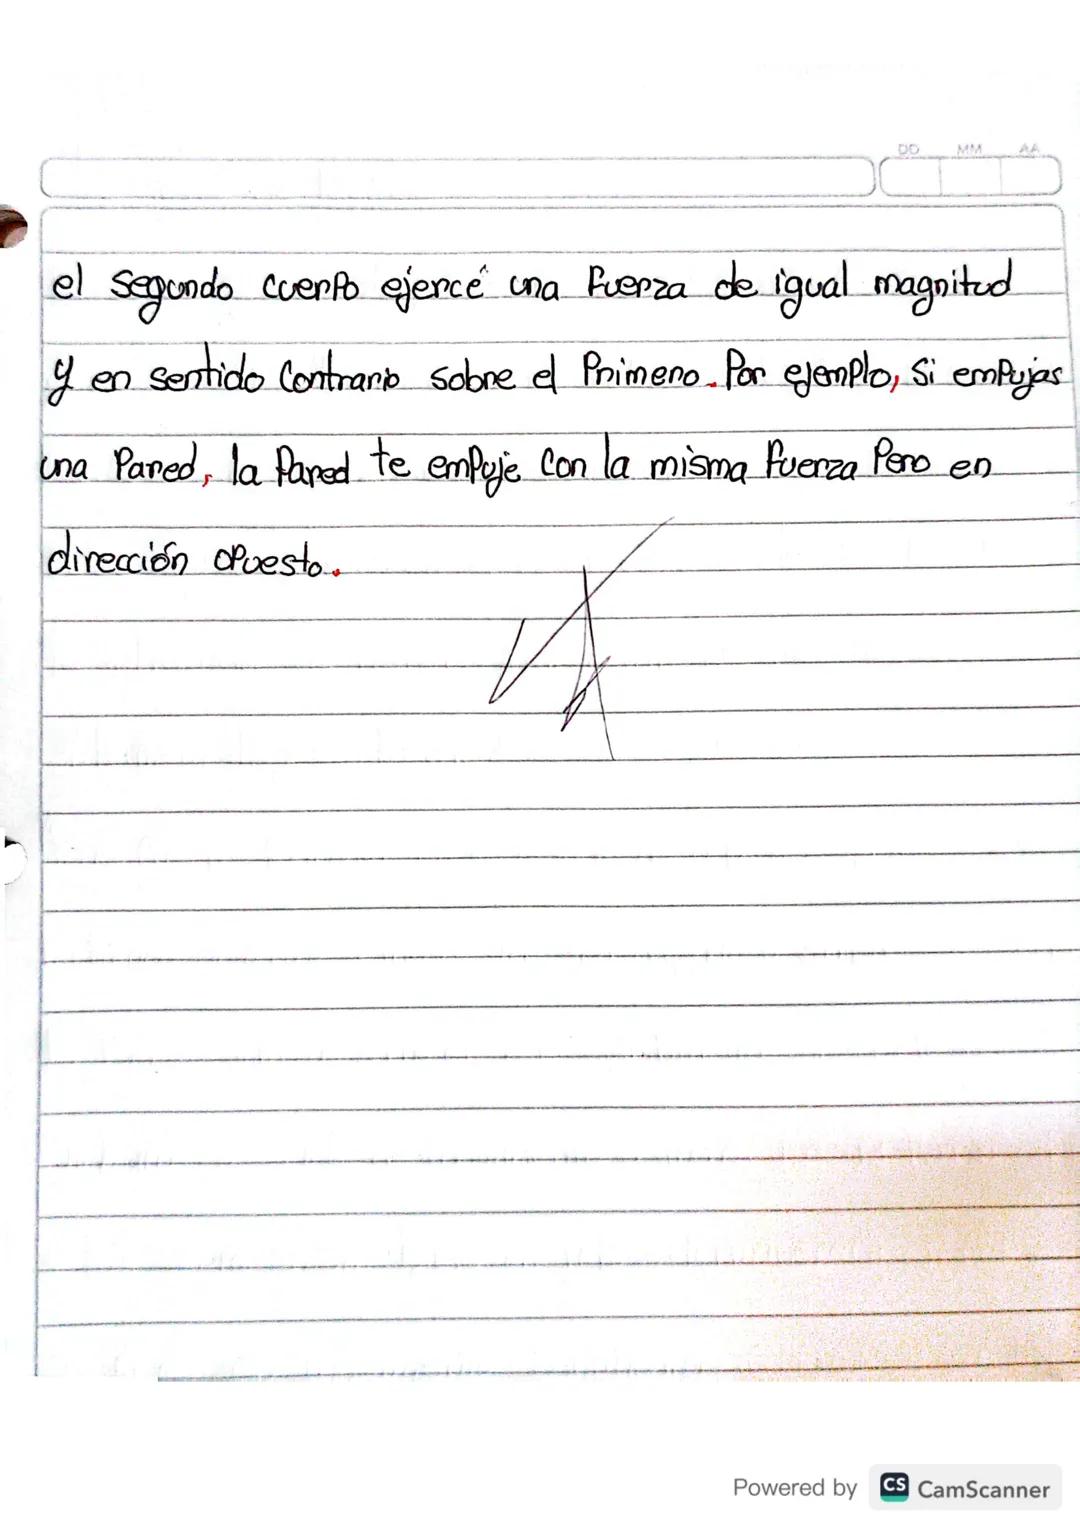 DD MM AA
el segundo cuerpo ejercé una fuerza de igual magnitud
y en sentido contrario sobre el Primero. Por ejemplo, si empujas
una Pared, la Pared te empuje con la misma fuerza Pero en
dirección opuesto.
Powered by CS CamScanner